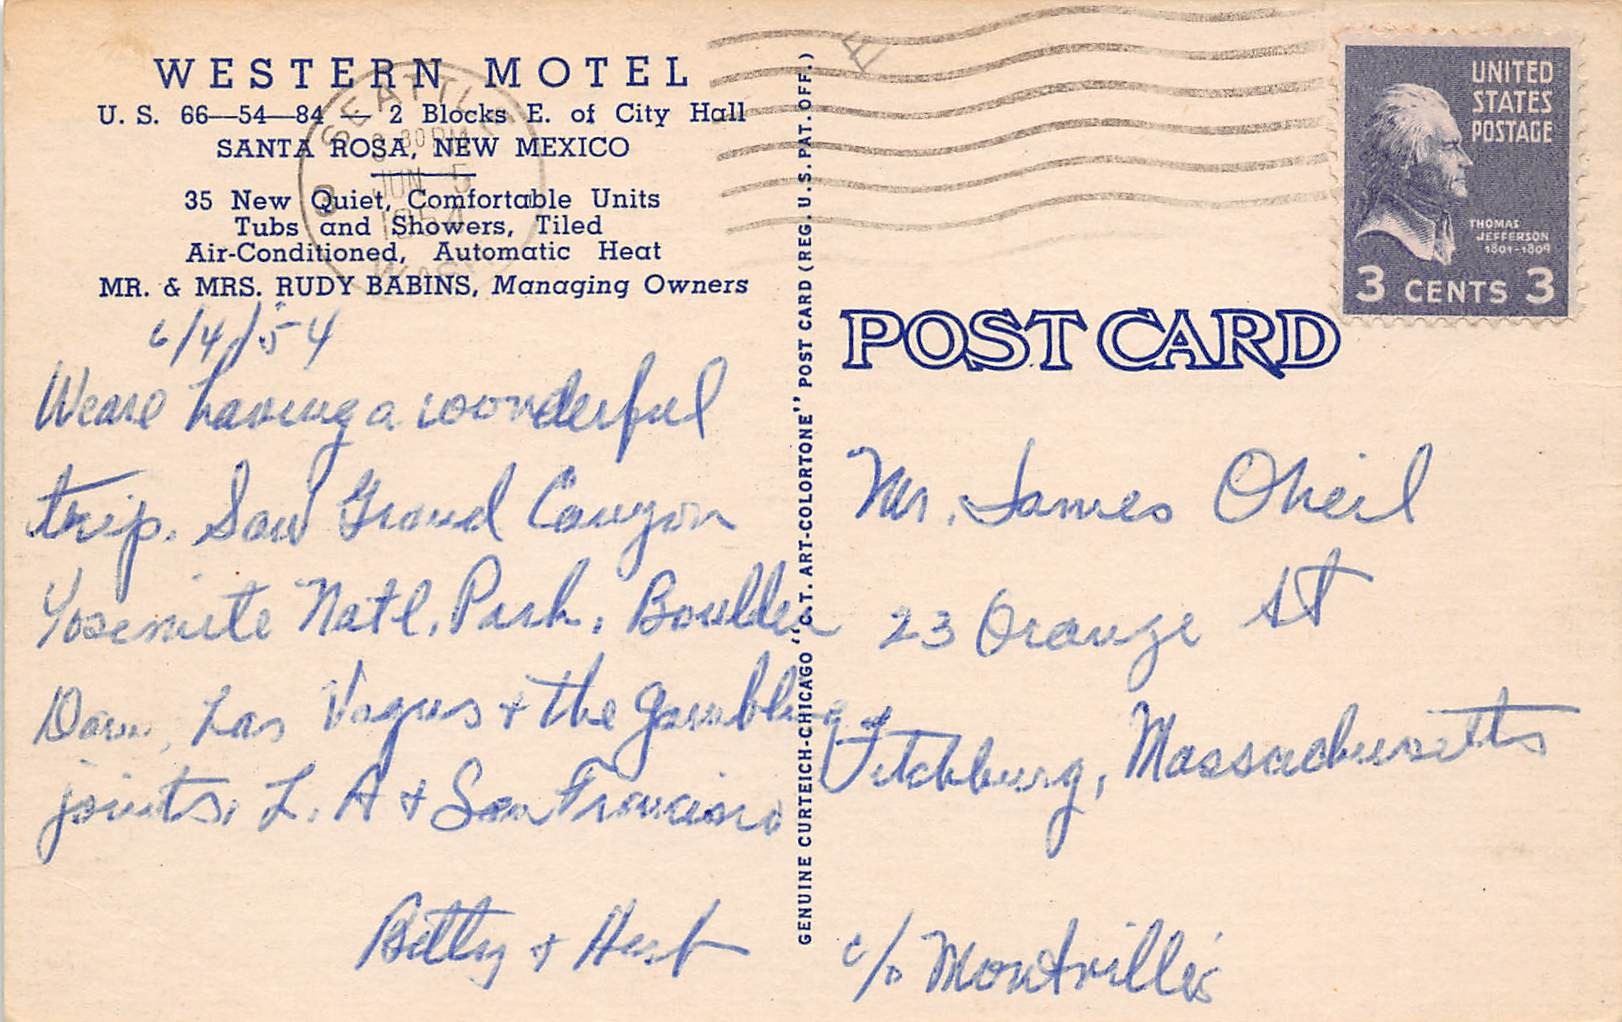 WESTERN MOTEL
U. S. 66—54—84 — 2 Blocks E. of City Hall
SANTA ROSA, NEW MEXICO
35 New Quiet, Comfortable Units
Tubs and Showers, Tiled
Air-Conditioned, Automatic Heat
MR. & MRS. RUDY BABINS, Managing Owners
SEATTLE
3 30 PM
JUN 5
1954
WASH
8
6/4/54
We are having a wonderful
trip. Saw Grand Canyon
Yosemite Natl. Park, Boulder
Dam, Las Vagus & the gambling
joints, L. A & San Francisco
Betty & Herb
GENUINE CURTEICH-CHICAGO "C.T. ART-COLORTONE" POST CARD (REG. U.S. PAT. OFF.)
UNITED
STATES
POSTAGE
THOMAS
JEFFERSON
1801-1809
3 CENTS 3
POST CARD
Mr. James Oneil
23 Orange St
Fitchburg, Massachusetts
c/o Montville's